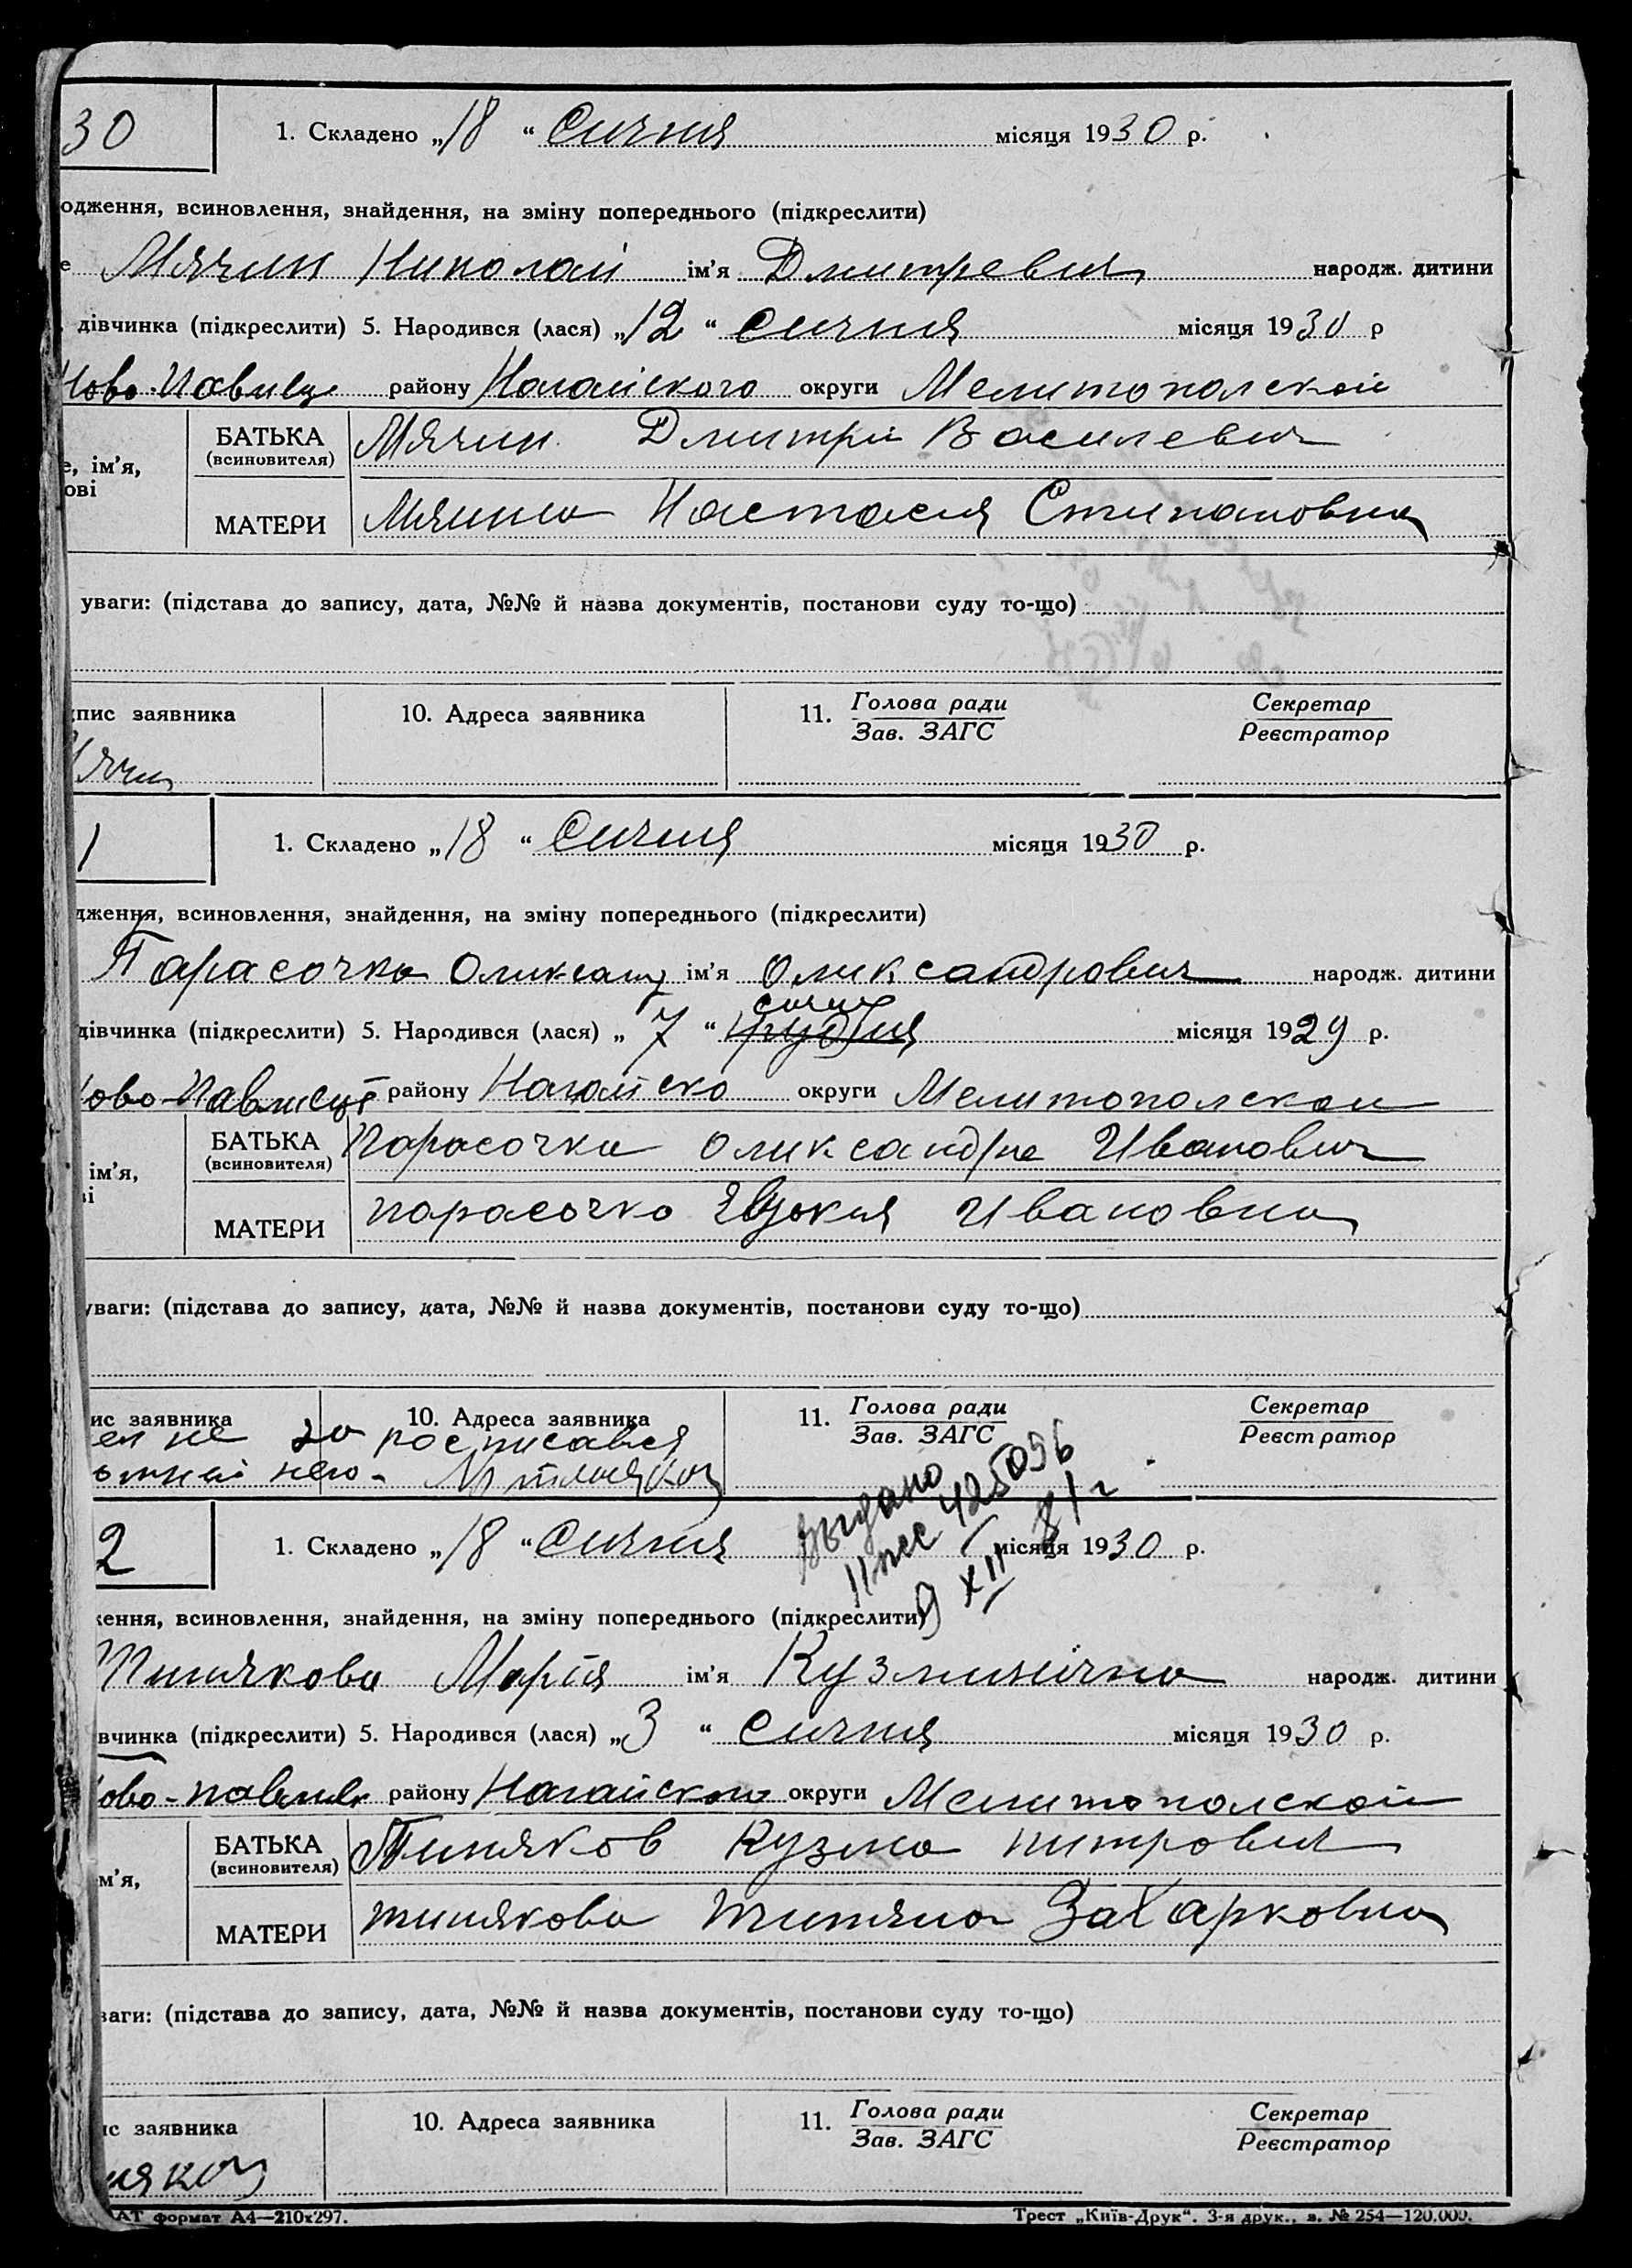 30
1. Складено „18“ Сичня місяця 1930 р.
одження, всиновлення, знайдення, на зміну попереднього (підкреслити)
е Мячин Николай ім'я Дмитревич народж. дитини
дівчинка (підкреслити) 5. Народився (лася) „12“ Сичня місяця 1930 р
Ново-Павливц району Нагайского округи Мелитополской
БАТЬКА Мячин Дмитри Василевич
(всиновителя)
е, ім'я,
ові
МАТЕРИ Мячина Настасия Стипановна
уваги: (підстава до запису, дата, №№ й назва документів, постанови суду то-що)
пис заявника 10. Адреса заявника 11. Голова ради Секретар
Зав. ЗАГС Реєстратор
Мячин
1
1. Складено „18“ Сичня місяця 1930 р.
дження, всиновлення, знайдення, на зміну попереднього (підкреслити)
Парасочка ім'я Олександрович народж. дитини
сичня
дівчинка (підкреслити) 5. Народився (лася) „7“ грудня місяця 1929 р.
ово-Павливц району Нагайско округи Мелитополской
БАТЬКА Парасочка Оликсандра Иванович
(всиновителя)
ім'я,
і
МАТЕРИ парасочка Ивановна
уваги: (підстава до запису, дата, №№ й назва документів, постанови суду то-що)
ис заявника 10. Адреса заявника 11. Голова ради Секретар
Зав. ЗАГС Реєстратор
не за росписався
него
выдано
425056
9 XII 81 г
2
1. Складено „18“ Сичня місяця 1930 р.
ження, всиновлення, знайдення, на зміну попереднього (підкреслити)
Тинякова Мария ім'я Кузминична народж. дитини
вчинка (підкреслити) 5. Народився (лася) „3“ Сичня місяця 1930 р.
ово-павливк району Нагайского округи Мелитополской
БАТЬКА Тиняков Кузма питрович
(всиновителя)
м'я,
МАТЕРИ тинякова Захарковна
ваги: (підстава до запису, дата, №№ й назва документів, постанови суду то-що)
ис заявника 10. Адреса заявника 11. Голова ради Секретар
Зав. ЗАГС Реєстратор
няков
АТ формат А4—210х297. Трест „Київ-Друк“. 3-я друк., з. № 254—120.000.